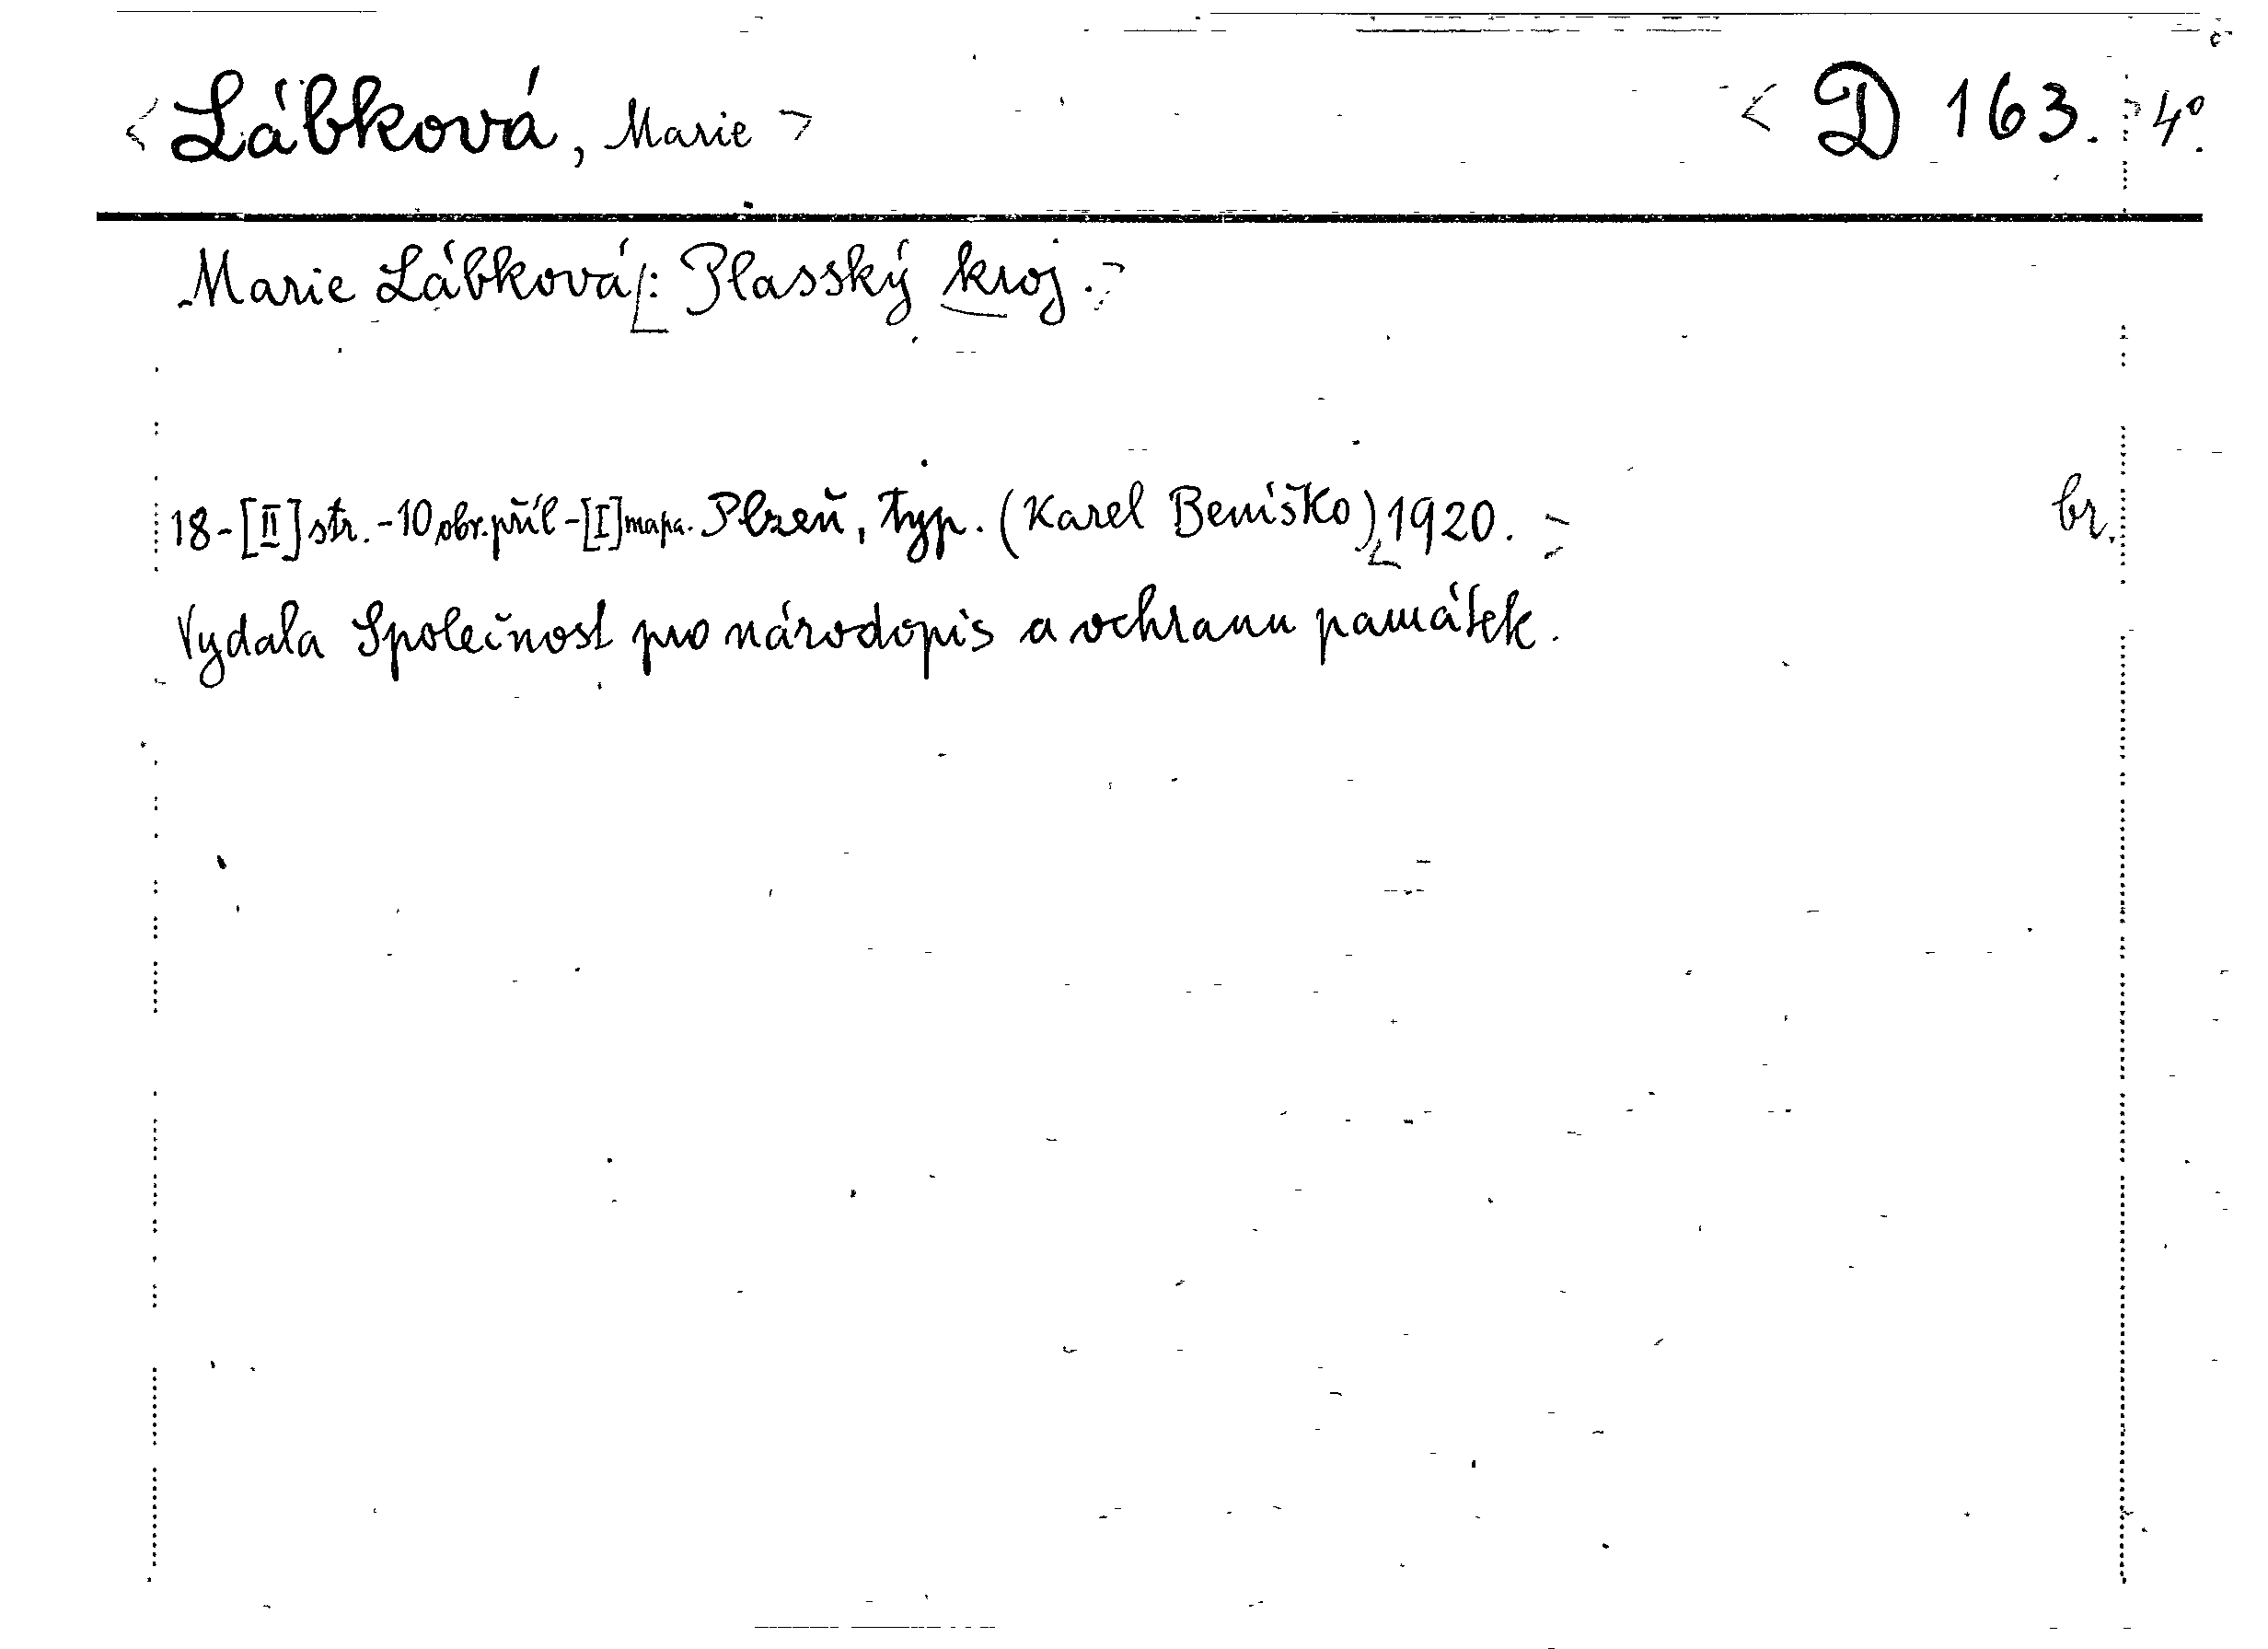 <Lábková, Marie> <D 163.> 4°.
Marie Lábková: Plasský kroj.>
18-[II] str. -10 obr. příl -[I] mapa. Plzeň, typ. (Karel Beníško) 1920. br.
Vydala Společnost pro národopis a ochranu památek.